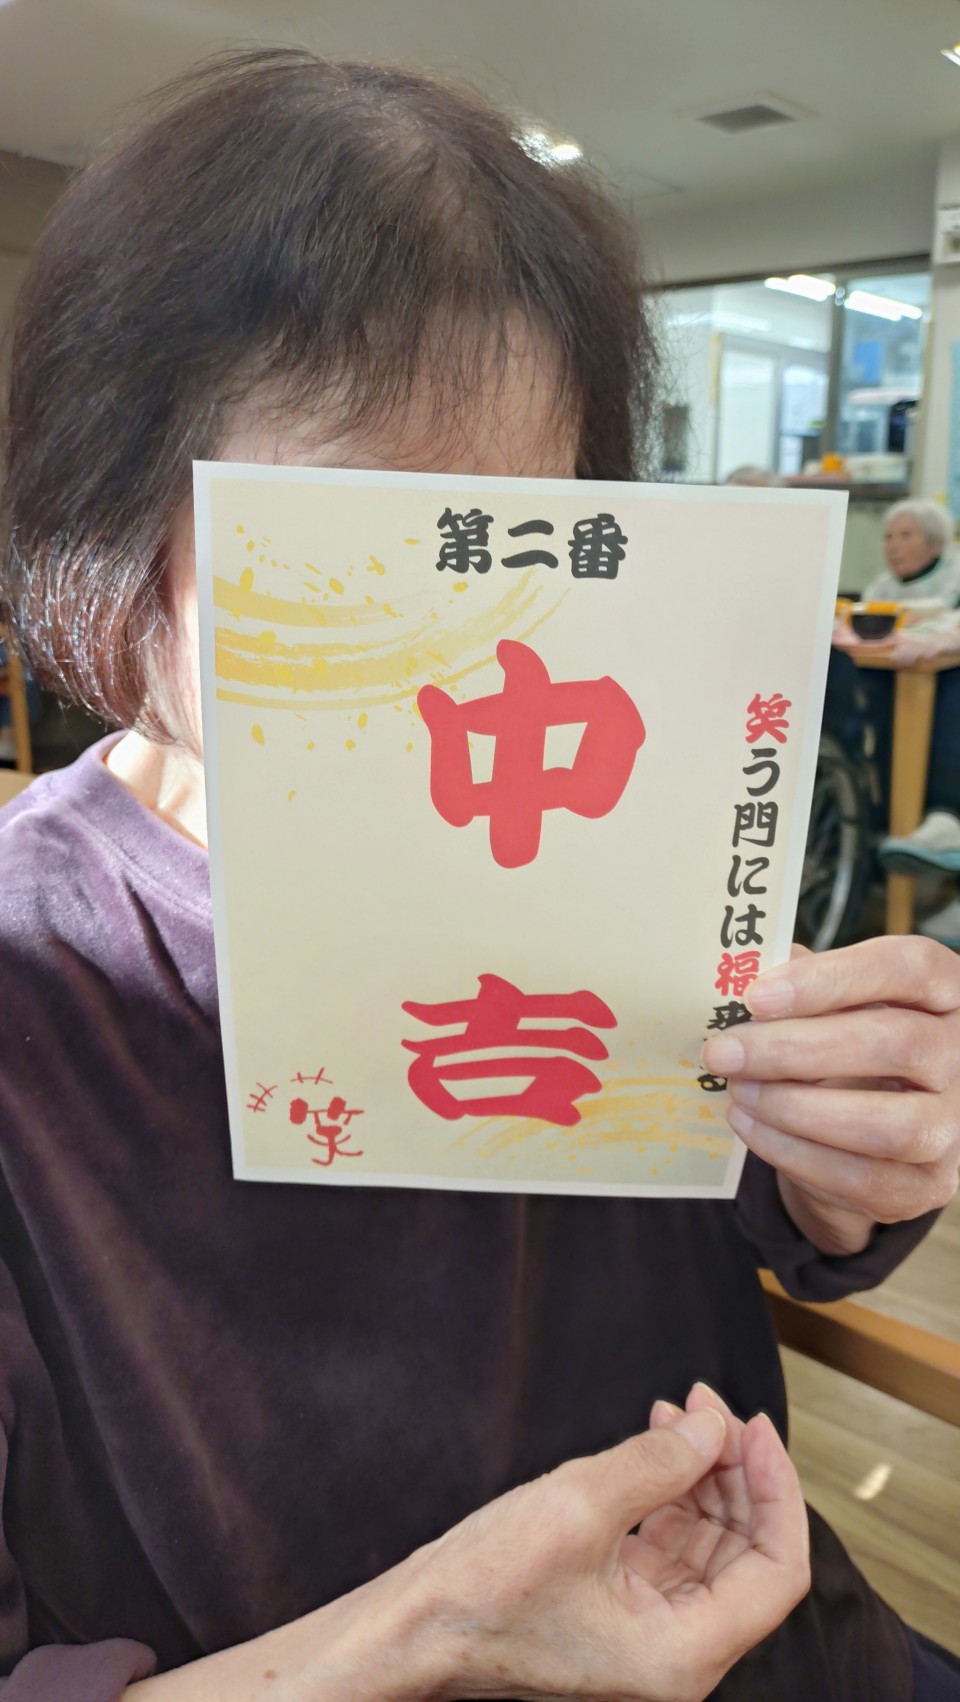 第二番
中吉
笑う門には福来る
笑